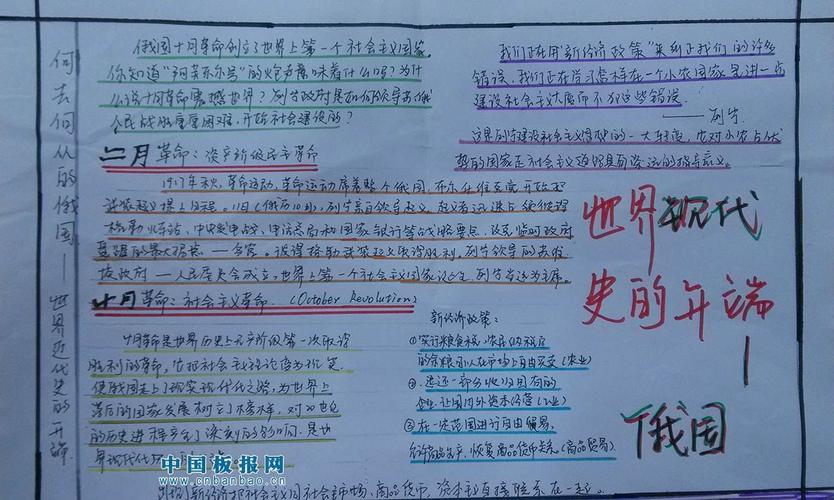 何去何从的俄国——世界近代史的开端
俄国十月革命创立了世界上第一个社会主义国家。
你知道“阿芙乐尔号”的炮声意味着什么吗？为什
么说十月革命震撼世界？列宁政府是如何领导苏俄
人民战胜重重困难，开始社会建设的？
二月革命：资产阶级民主革命
1917年秋，革命运动，革命运动席卷整个俄国，布尔什维克党开始把
武装起义提上日程。11日（俄历10月），列宁亲自领导起义。起义者迅速占领彼得
格勒火车站、中央电中战、电话总局和国家银行等战略要点，以及临时政府
最强的最大据点——冬宫。彼得格勒武装起义取得胜利，列宁领导的苏俄
政府——人民委员会成立，世界上第一个社会主义国家诞生，列宁当选为主席。
十月革命：社会主义革命.（October Revolution）
十月革命是世界历史上无产阶级第一次取得
胜利的革命，它把社会主义理论变为现实，
使俄国走上了现实现代化之路，为世界上
落后的国家发展树立了榜样，对20世纪
的历史进程产生了深刻的影响，是世
界现代
新经济政策：
①实行粮食税，农民纳税后
的余粮可以在市场上自由买卖（农业）
②退还一部分收归国有的
企业，让国内外资本经营（工业）
③在一定范围进行自由贸易，
恢复商品货币关系（商品贸易）
我们正在用“新经济政策”来纠正我们的许多
错误，我们正在学习怎样在一个小农国家里进一步
建设社会主义大厦而不犯这些错误
——列宁
这是列宁建设社会主义模型的一大转变，也对小农占优
势的国家走社会主义道路具有深远的指导意义。
世界现代
史的开端
—
俄国
中国板报网
www.cnbanbao.cn
新经济把社会主义同社会市场、商品货币、资本主义直接联系在一起。